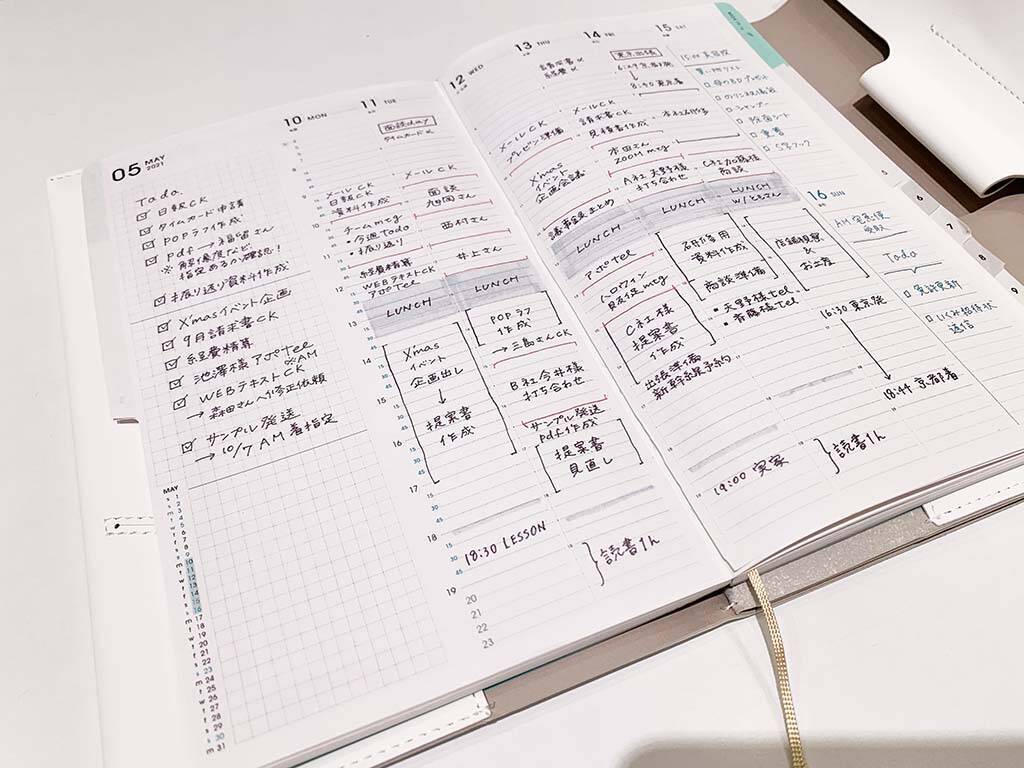 05 MAY
2021
Todo
日報CK
タイムカード申請
POPラフ作成
pdf → 福留さん
※解像度など
指定あるか確認!
振り返り資料作成
X'masイベント企画
9月請求書CK
経費精算
池澤様アポTel
※AM
WEBテキストCK
→ 森田さんへ修正依頼
サンプル発送
→ 10/7 AM着指定
MAY
10 MON
メールCK
日報CK
資料作成
チームmtg
・今週Todo
・振り返り
経費精算
WEBテキストCK
アポTel
LUNCH
X'mas
イベント
企画出し
↓
提案書
作成
18:30 LESSON
11 TUE
面談day
タイムカード〆
メールCK
面談
九岡さん
西村さん
井上さん
LUNCH
POPラフ
作成
→ 三島さんCK
B社今井様
打ち合わせ
サンプル発送
pdf作成
提案書
見直し
読書1h
12 WED
メールCK
プレゼン準備
X'mas
イベント
企画会議
議事録まとめ
LUNCH
アポTel
ハロウィン
見征mtg
C社様
提案書
作成
出張準備
新幹線予約
19:00 実家
13 THU
請求書〆
経費〆
メールCK
請求書CK
見積書作成
本田さん
ZOOM mtg
A社天野様
打ち合わせ
LUNCH
資料作成
商談準備
・天野様tel
・斉藤様tel
読書1h
14 FRI
東京出張
8:40 東京着
C社加藤様
商談
LUNCH
店舗視察
&
お土産
16:30 東京発
↓
18:44 京都着
15 SAT
15:00 美容院
買い物リスト
シャンプー
除菌シート
S字フック
16 SUN
AM 宅急便
受取
Todo
免許更新
いくみ招待状
返信